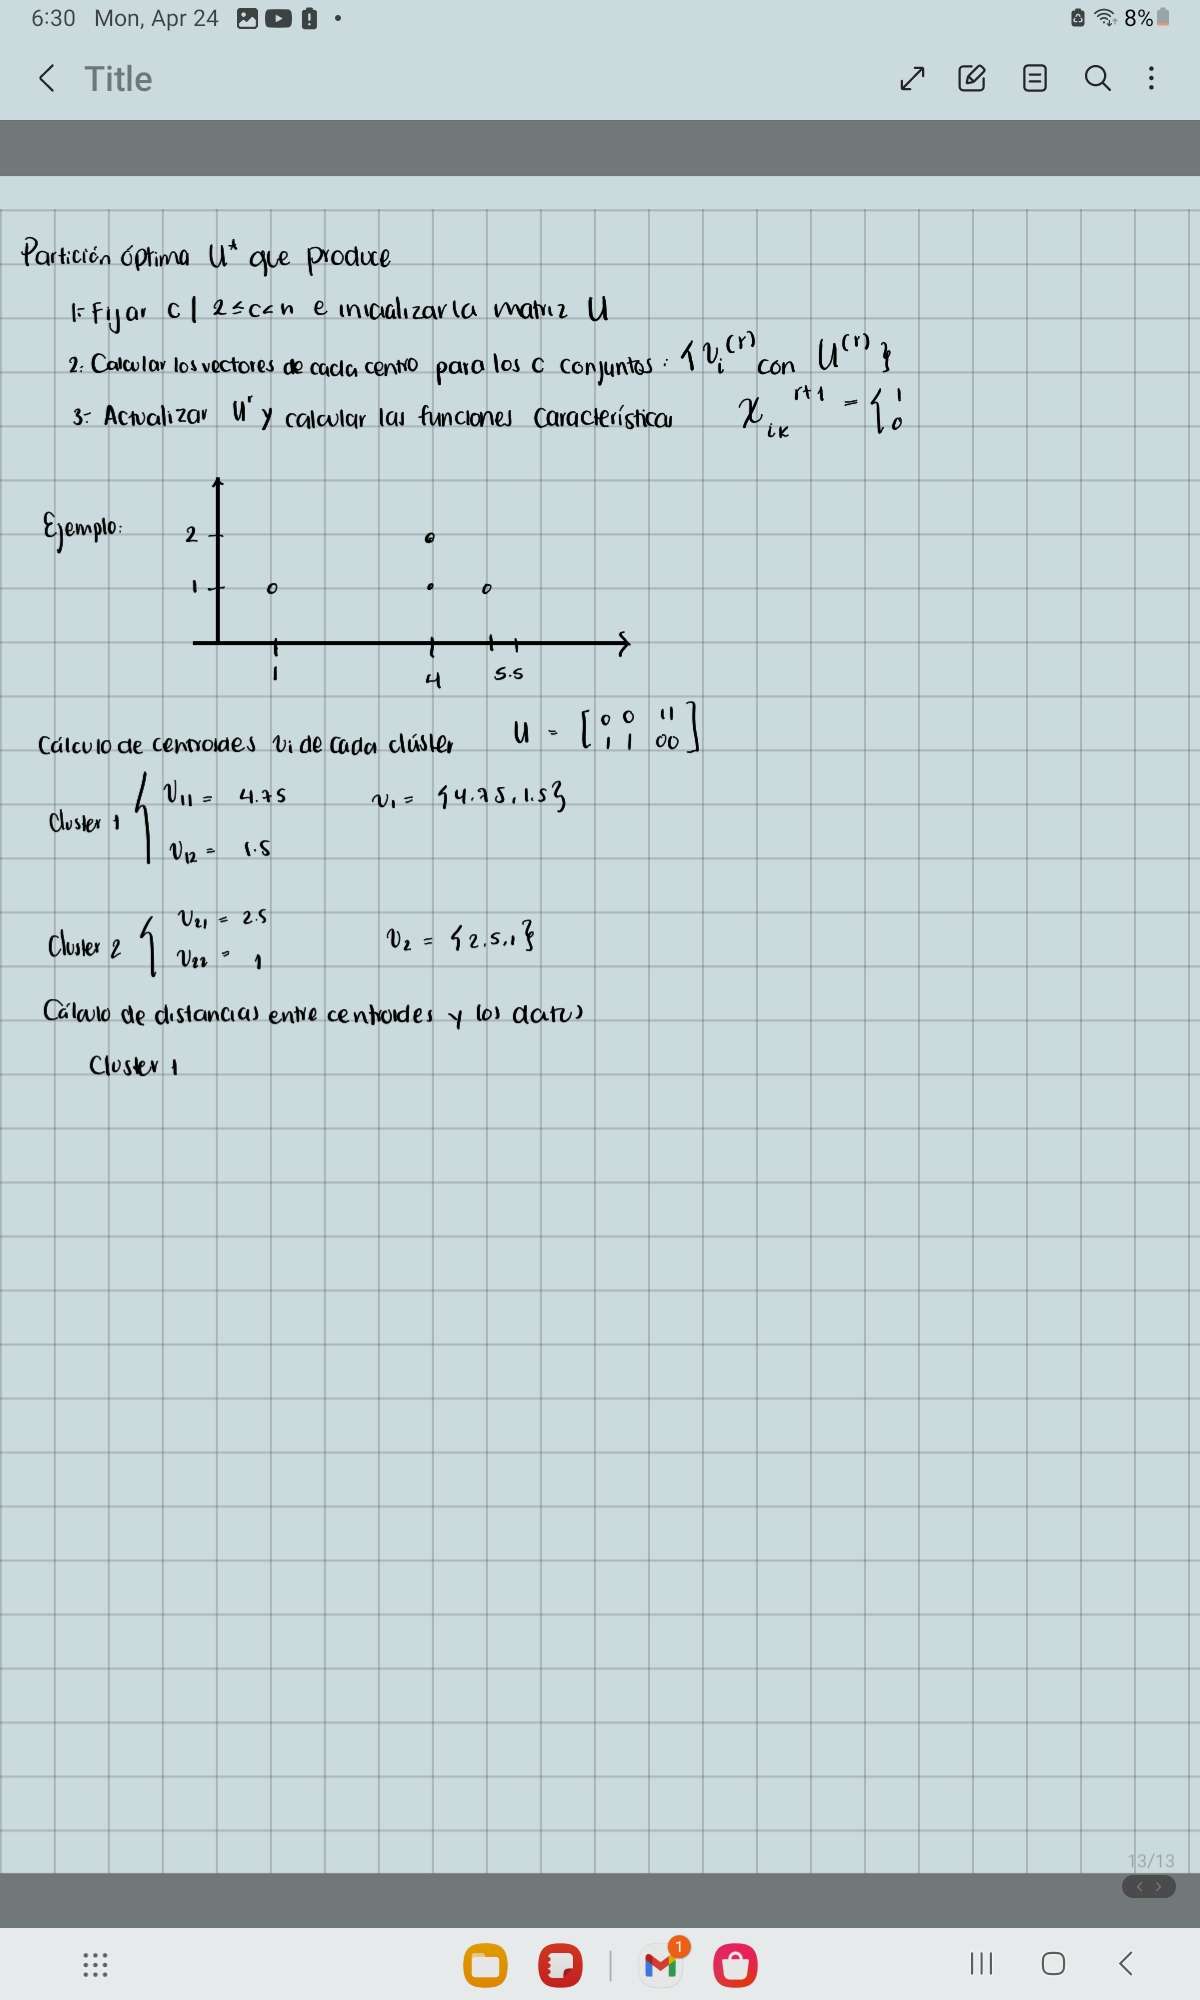 6:30 Mon, Apr 24 8%
Title
Partición óptima U* que produce
1.- Fijar c | 2≤c<n e inicializar la matriz U
2.- Calcular los vectores de cada centro para los c conjuntos: {v_i^(r) con U^(r)}
3.- Actualizar U^r y calcular las funciones característica χ_ik^r+1 = { 1 0
Ejemplo:
2
1
1 4 5.5
Cálculo de centroides vi de cada clúster U = [ 0 0 11
1 1 00 ]
Cluster 1 { v11 = 4.75 v1 = {4.75, 1.5}
v12 = 1.5
Cluster 2 { v21 = 2.5 v2 = {2.5,1}
v22 = 1
Cálculo de distancias entre centroides y los datos
Cluster 1
13/13
1